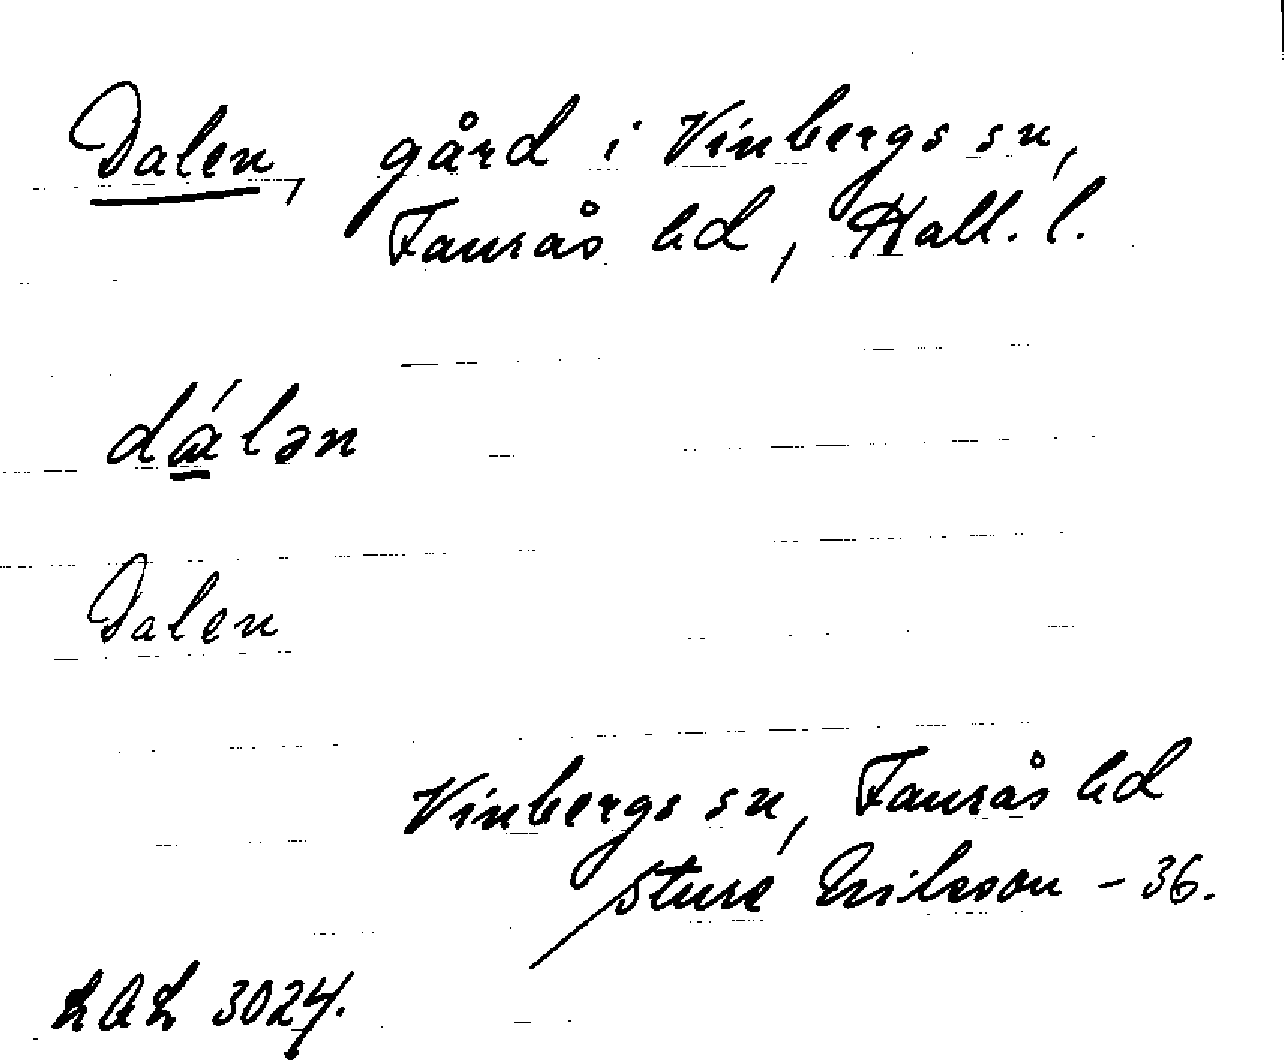 Dalen, gård i Vinbergs sn,
Faurås hd, Hall. l.
dάlən
Dalen
Vinbergs sn, Faurås hd
Sture Eriksson - 36.
LAL 3024.